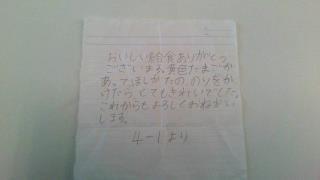 おいしい給食ありがとう
ございます。黄色たまごが
あって、ほしがたの、のりをか
けたら、とてもきれいでした。
これからもよろしくおねがい
します。
4-1より